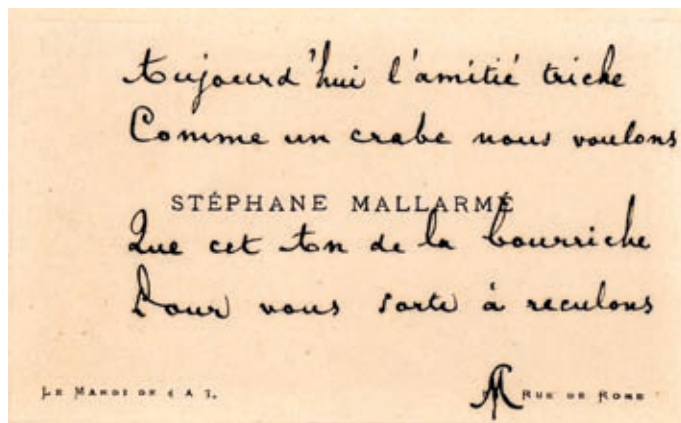 Aujourd'hui l'amitié triche
Comme un crabe nous voulons
STÉPHANE MALLARMÉ
Que cet An de la bourriche
Pour vous sorte à reculons
LE MARDI DE 4 A 7.
RUE DE ROME